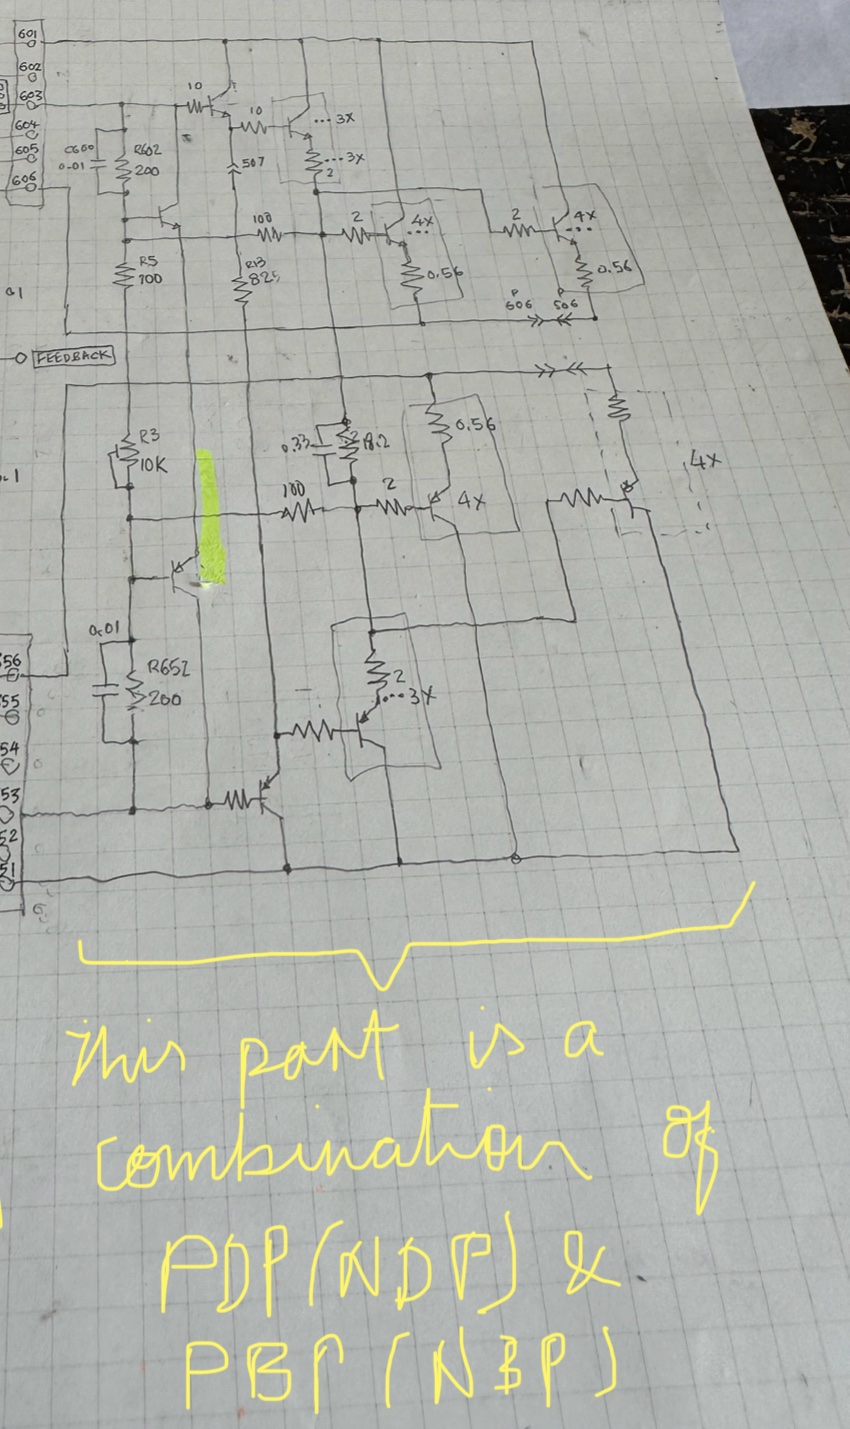 601
602
603
604
605
606
10
10
... 3X
C600
0.01
R602
200
507
...3X
2
100
2
4X
...
2
4X
...
R5
100
R13
0.56
0.56
P
606
P
506
FEEDBACK
R3
10K
0.33
18.2
0.56
4X
100
2
4X
0.01
R652
200
2
...3X
56
55
54
53
52
51
This part is a
combination of
PDP(NDP) &
PBP(NBP)